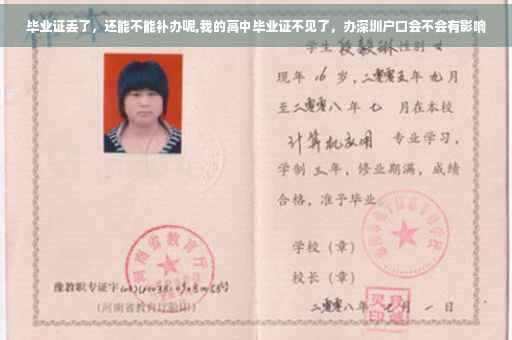 毕业证丢了，还能不能补办呢,我的高中毕业证不见了，办深圳户口会不会有影响
学生段毅琳性别女
现年16岁，二零零五年九月
至二零零八年七月在本校
计算机应用 专业学习，
学制三年，修业期满，成绩
合格，准予毕业
学校（章）
校长（章）
二零零八年七月一日
河南省教育厅
豫教职专证字
（河南省教育厅验印）